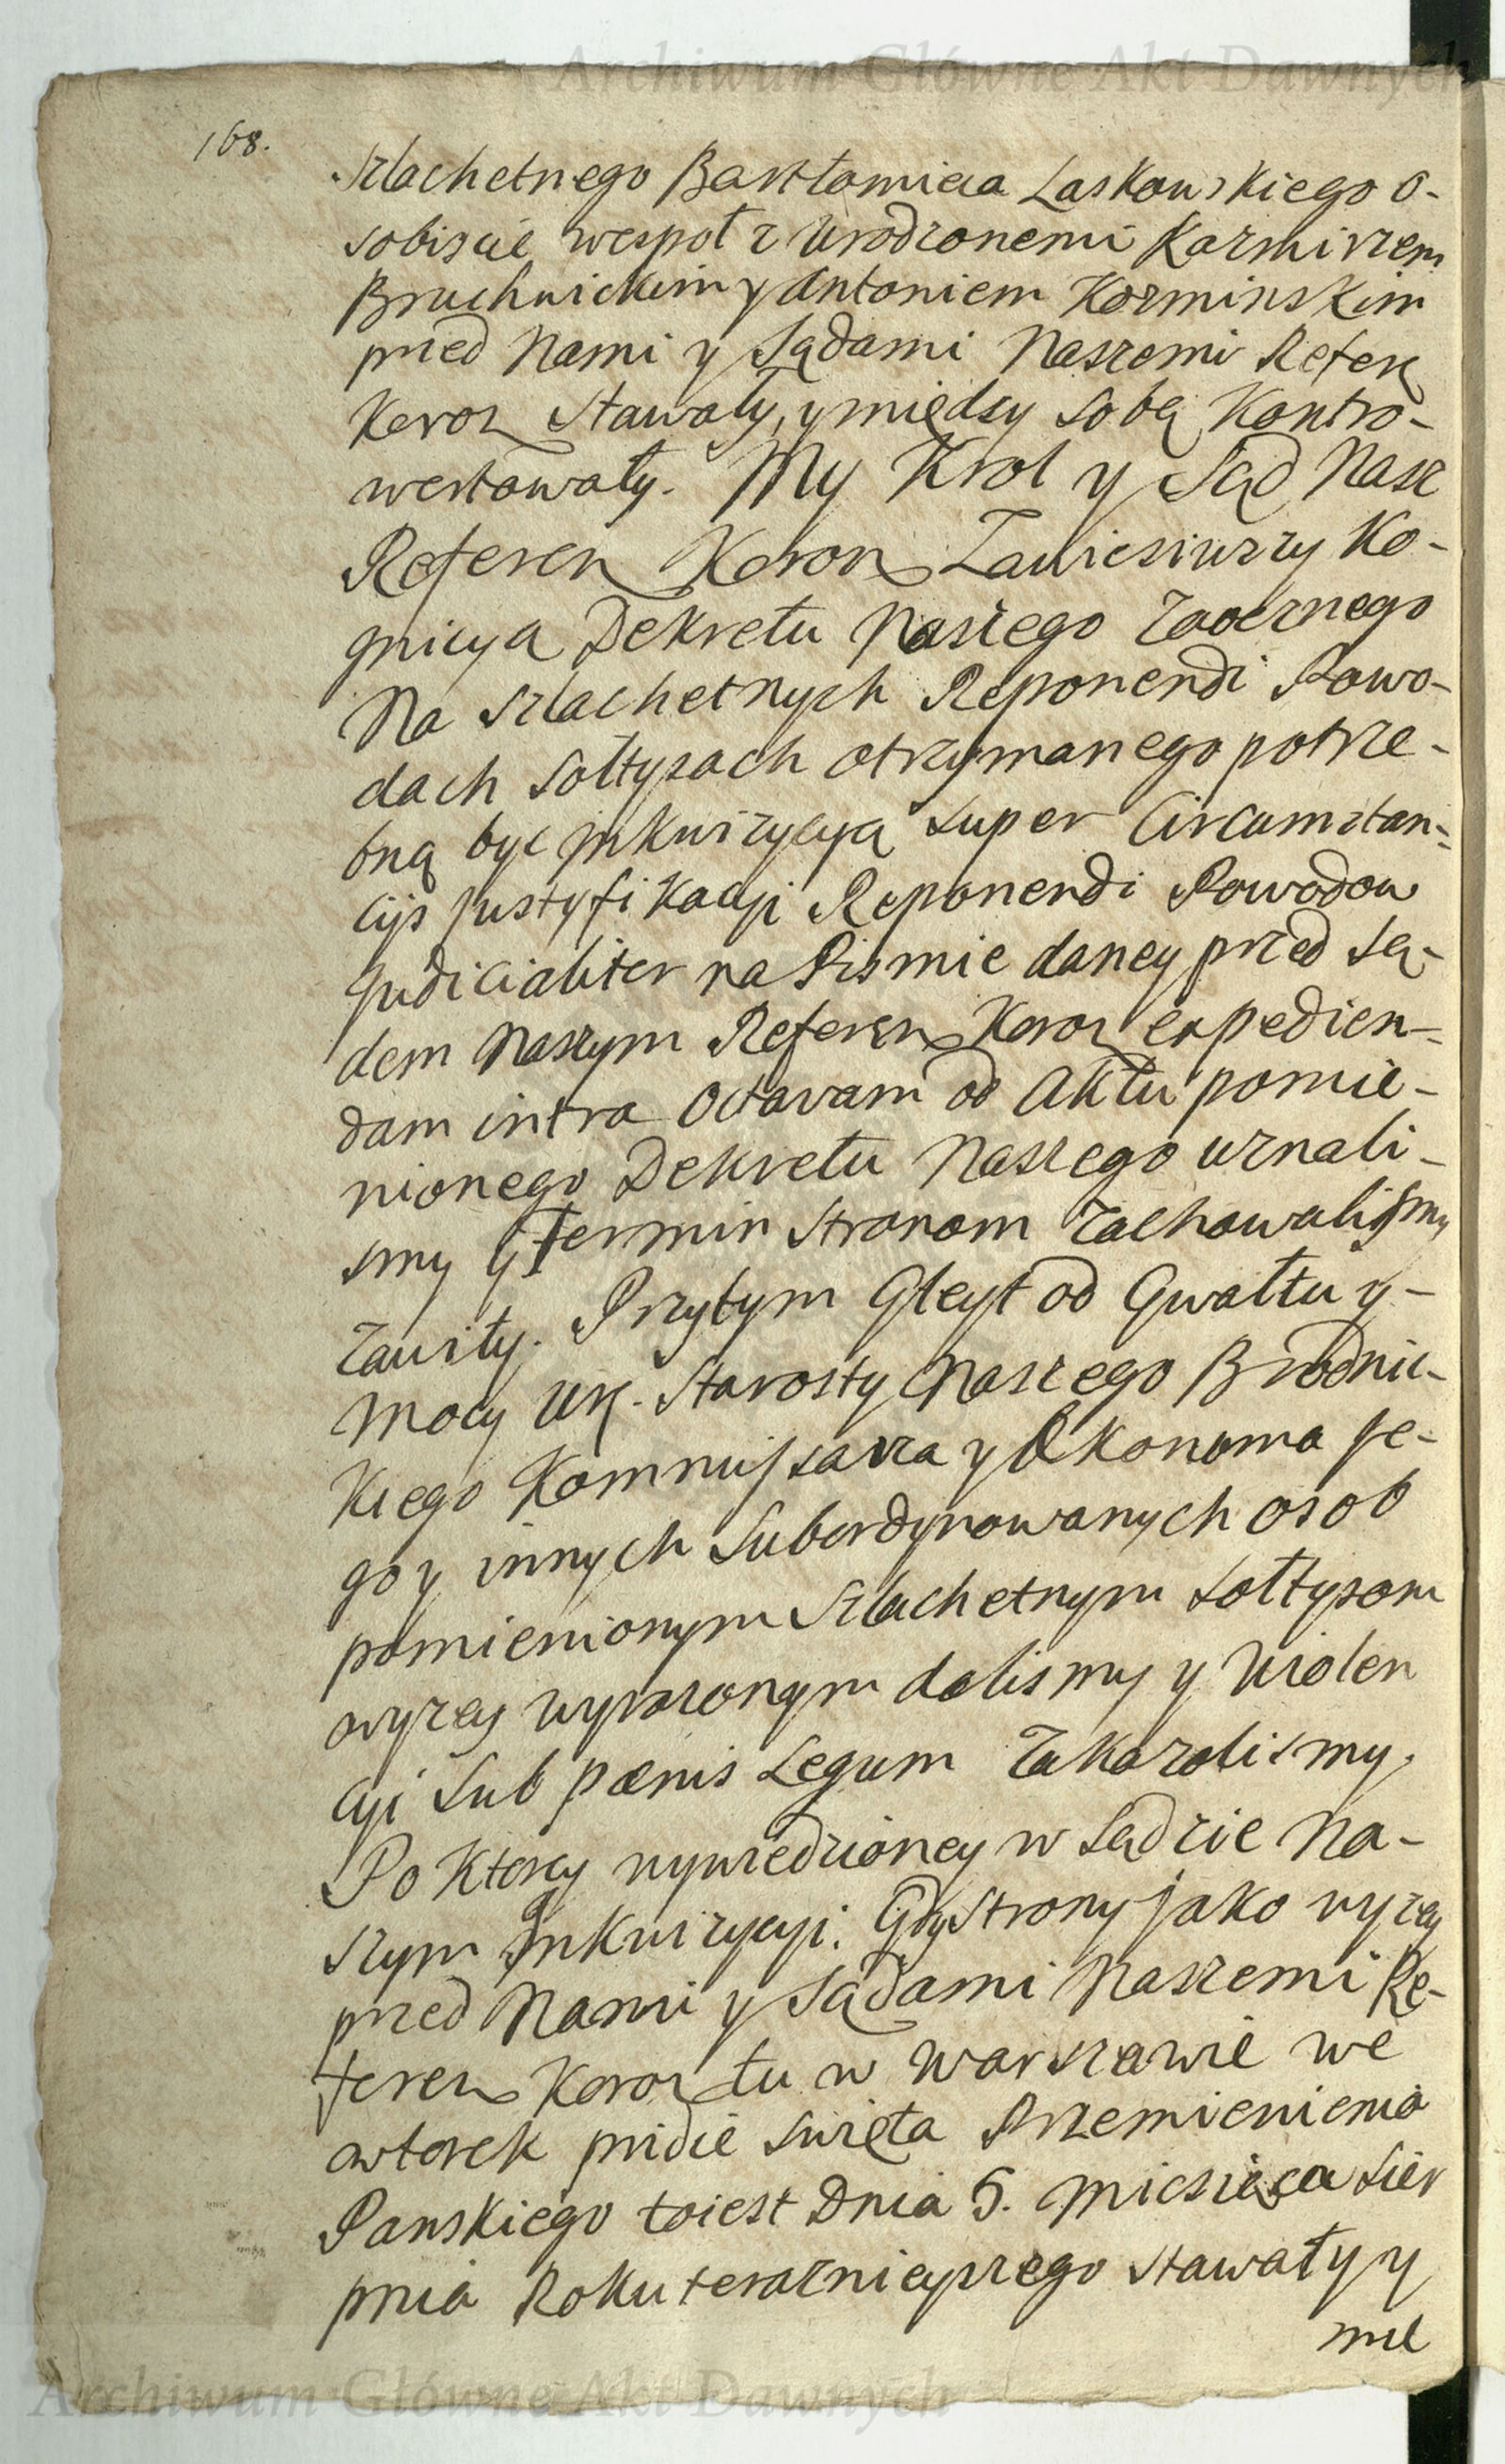 Archiwum Główne Akt Dawnych
168.
Szlachetnego Bartłomieia Laskowskiego o-
sobiscie wespoł z Urodzonemi Kazmirzem
Bruchnickim y Antoniem Kozminskim
przed Nami y Sądami Naszemi Referen
Koron Stawały, y między sobą Kontro-
wertowały. My Krol y Sąd Nasz
Referen Koron Zawiesiwszy Ko-
gnicya Dekretu Naszego Zaocznego
Na Szlachetnych Reponendi Powo-
dach Sołtysach otrzymanego potrze-
bną byc Jnkwizycyą super Circumstan-
cijs Justyfikacyi Reponendi Powodow
Judicialiter na Pismie daney przed Są-
dem Naszym Referen Koron expedien-
dam intra Octavam od Aktu pomie-
nionego Dekretu Naszego uznali-
smy y Termin Stronom Zachowalismy
Zawity. Przytym Gleyt od Gwałtu y-
Mocy Ur. Starosty Naszego Brodnic-
Kiego Kommissarza y Ekonoma Je-
go y innych Subordynowanych osob
pomienionym Szlachetnym Sołtysom
wyzey wyrazonym dalismy y Violen
cyi Sub pœnis Legum Zakazalismy.
Po Ktorey wywiedzioney w Sądzie Na-
szym Jnkwizycyi. Gdy Strony jako wyzey
przed Nami y Sądami Naszemi Re-
feren Koron tu w Warszawie we
wtorek pridie Swięta Przemienienia
Panskiego toiest Dnia 5. Miesięca Sier
pnia Roku teraznieyszego Stawały y
mie
Archiwum Główne Akt Dawnych